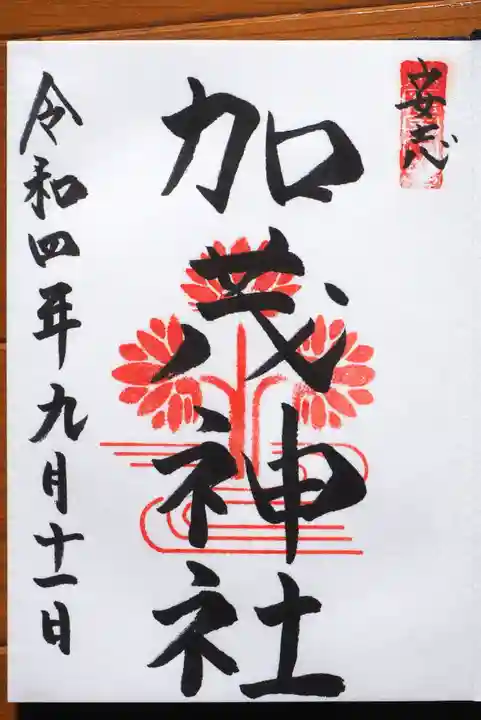 安志
加茂神社
令和四年九月十一日